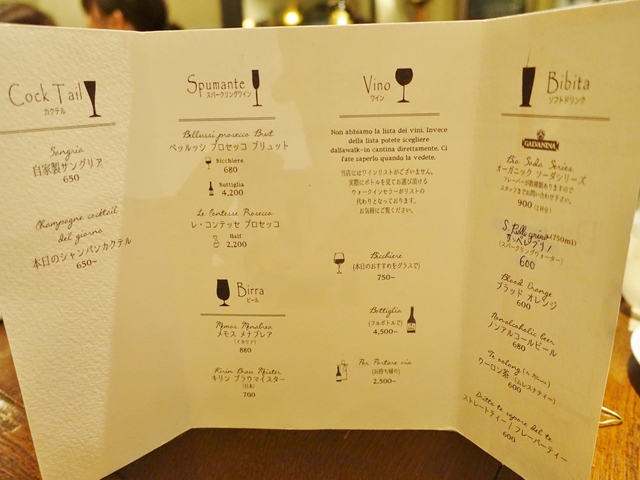 Cock Tail
カクテル
Sangria
自家製サングリア
650
Champagne cocktail
del giorno
本日のシャンパンカクテル
650~
Spumante
スパークリングワイン
Bellussi prosecco Brut
ベッルッシ プロセッコ ブリュット
Bicchiere
680
Buttiglia
4,200
Le Contesse Prosecco
レ・コンテッセ プロセッコ
Half
2,200
Birra
ビール
Memos Menabrea
メモス メナブレア
(イタリア)
880
Kirin Brau Meister
キリン ブラウマイスター
(日本)
700
Vino
ワイン
Non abbiamo la lista dei vini. Invece
della lista potete scegliere
dallawalk-in cantina direttamente. Ci
fate saperlo quando la vedete.
当店にはワインリストがございません。
実際にボトルを見てお選び頂ける
ウォークインセラーがリストの
代わりとなっております。
お気軽にご覧ください。
Bicchiere
(本日のおすすめをグラスで)
750~
Bottiglia
(フルボトルで)
4,500~
Per Portare via
(お持ち帰り)
2,500~
Bibita
ソフトドリンク
GALVANINA
Bio Soda Series
オーガニック ソーダシリーズ
フレーバーが数種類ありますので
スタッフまでお問い合わせ下さい。
900 (2杯分)
S. Pellegrino (750ml)
(スパークリングウォーター)
600
Blood Orange
ブラッド オレンジ
600
Nonalcoholic beer
ノンアルコールビール
680
Te oolong
ウーロン茶 (ムレスナティー)
600
Dritto te sapore del te
ストレートティー / フレーバーティー
600